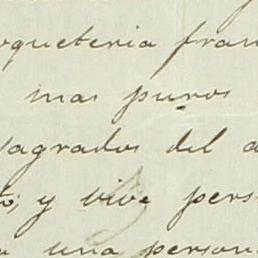 oqueteria fran
mas puros
sagrados del a
to; y vive pers
una person